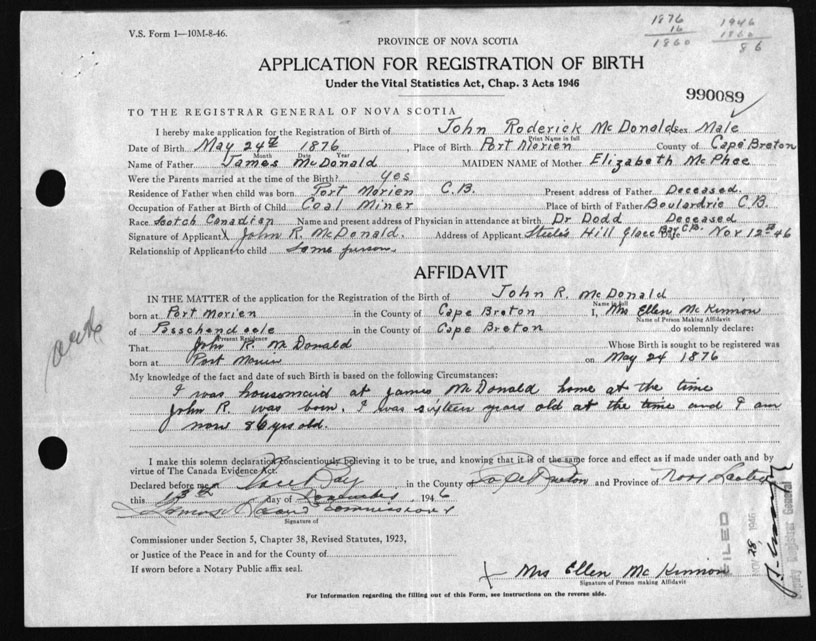 V.S. Form 1—10M-8-46.
1876
16
1860
1946
1860
86
PROVINCE OF NOVA SCOTIA
APPLICATION FOR REGISTRATION OF BIRTH
Under the Vital Statistics Act, Chap. 3 Acts 1946
990089
TO THE REGISTRAR GENERAL OF NOVA SCOTIA
I hereby make application for the Registration of Birth of John Roderick McDonald sex Male
Print Name in full
Date of Birth May 24th 1876, Place of Birth Port Morien County of Cape Breton
Month Date Year
Name of Father James McDonald MAIDEN NAME of Mother Elizabeth McPhee
Were the Parents married at the time of Birth? yes
Residence of Father when child was born Port Morien C.B. Present address of Father Deceased.
Occupation of Father at Birth of Child Coal Miner Place of birth of Father Boulardrie C.B.
Race Scotch Canadian Name and present address of Physician in attendance at birth Dr Dodd Deceased
Signature of Applicant X John R. McDonald. Address of Applicant Steeles Hill Glace Bay C.B. Date Nov 12th 46
Relationship of Applicant to child Same person
AFFIDAVIT
IN THE MATTER of the application for the Registration of the Birth of John R. McDonald
Name in full
born at Port Morien in the County of Cape Breton I, Mrs Ellen McKinnon
Name of Person Making Affidavit
of Passchendaele in the County of Cape Breton do solemnly declare:
Present Residence
That John R. McDonald Whose Birth is sought to be registered was
born at Port Morien on May 24 1876
My knowledge of the fact and date of such Birth is based on the following Circumstances:
I was housemaid at James McDonald home at the time
John R. was born. I was sixteen years old at the time and I am
now 86 yrs old.
I make this solemn declaration conscientiously believing it to be true, and knowing that it is of the same force and effect as if made under oath and by
virtue of The Canada Evidence Act.
Declared before me at Glace Bay, in the County of Cape Breton and Province of Nova Scotia
this 13th day of November, 1946
Signature of
Commissioner under Section 5, Chapter 38, Revised Statutes, 1923,
or Justice of the Peace in and for the County of
If sworn before a Notary Public affix seal.
X Mrs Ellen McKinnon
Signature of Person making Affidavit
For Information regarding the filling out of this Form, see instructions on the reverse side.
FILED
NOV 28 1946
Deputy Registrar General